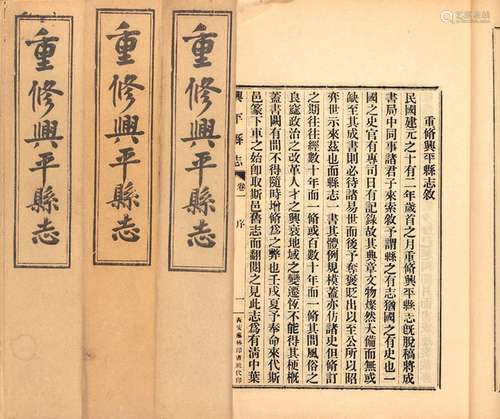 重修興平縣志
重修興平縣志
重修興平縣志
重脩興平縣志敘
民國建元之十有二年歲首之月重脩興平縣志既脫稿將成
書局中同事諸君子來索敘予謂縣之有志猶國之有史也一
國之史官有專司日有記錄故其典章文物燦然大備而無或
缺至其成書則必待諸易世而後予奪褒貶出以至公所以昭
奕世示來茲也而縣志一書其體例規模蓋亦仿諸史但脩訂
之期往往經數十年而一脩或百數十年而一脩其間風俗之
良窳政治之改革人才之興衰地域之變遷恆不能得其梗概
蓋書闕有間不得隨時增脩為之弊也壬戌夏予奉命來代斯
邑篆下車之始卽取斯邑舊志而翻閱之見此志為有清中葉
興平縣志 卷一 序 一 西安藝林印書社代印